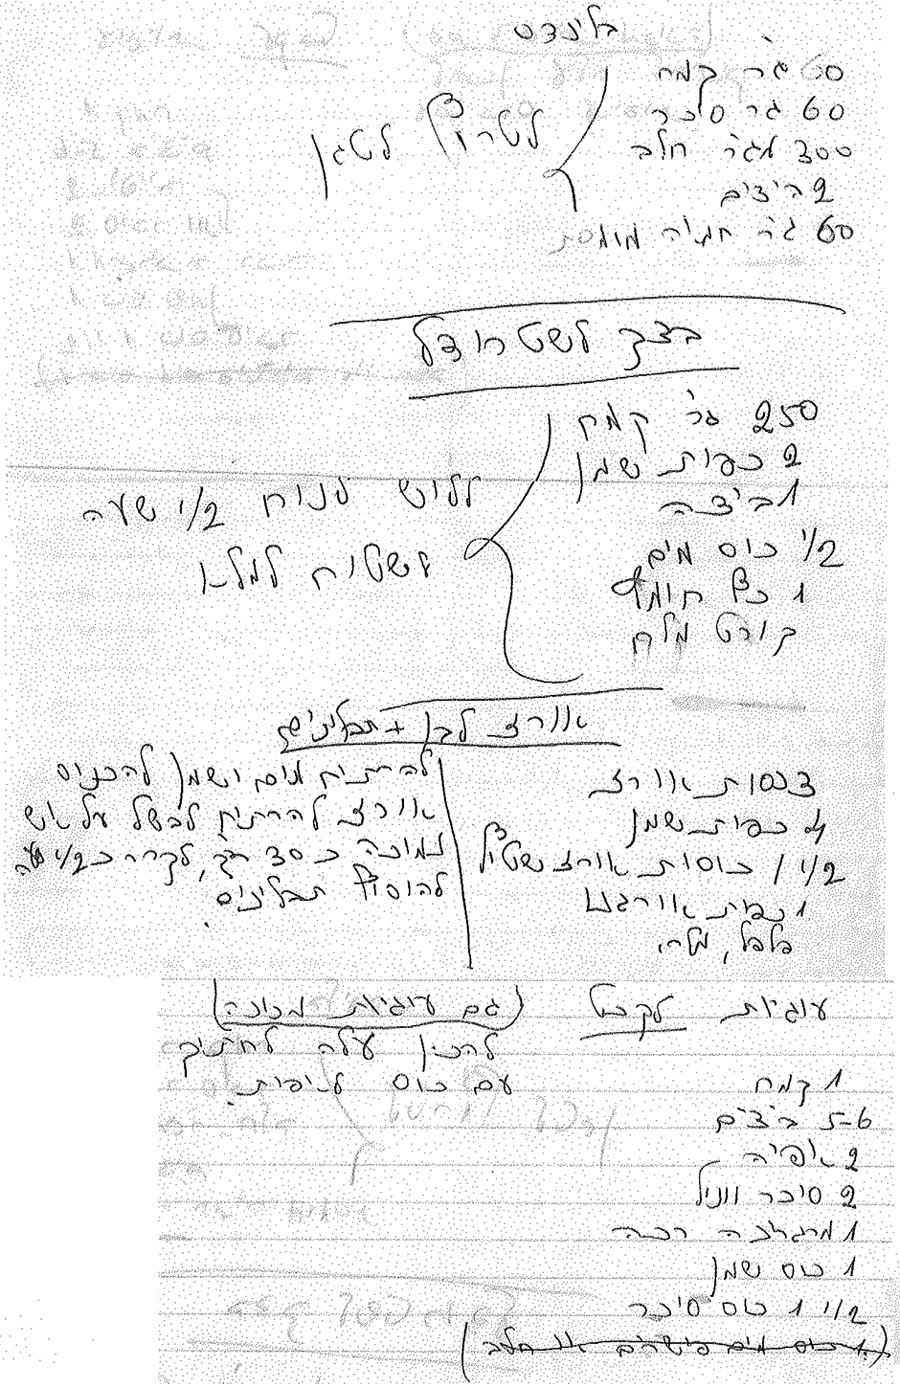 בלינצס
60 גר' קמח
60 גר סוכר
300 מג"ר חלב
2 ביצים
60 גר' חמאה מומסת
לטרוף לטגן
בצק לשטרודל
250 גר' קמח
2 כפות שמן
1 ביצה
1/2 כוס מים
1 כף חומץ
קורט מלח
ללוש לנוח 1/2 שעה
לשטוח למלא
אורז לבן + תבלינים
3 כוסות אורז
4 כפות שמן
1/2 כוסות אורז
1 כפית אורגנו
פלפל, מלח
להרתיח מים ושמן להכניס
אורז להרתיח לבשל על אש
נמוכה כ 30 דק, לקרר כ 1/2 שעה
להוסיף תבלינים.
עוגיות (גם עוגיות מכונה)
להכין עלה לחתוך
עם כוס
1 קמח
5-6 ביצים
2 אפיה
2 סוכר וניל
1 מרגרינה רכה
1 כוס שמן
1 1/2 כוס סוכר
(1 כוס מים פושרים או חלב)